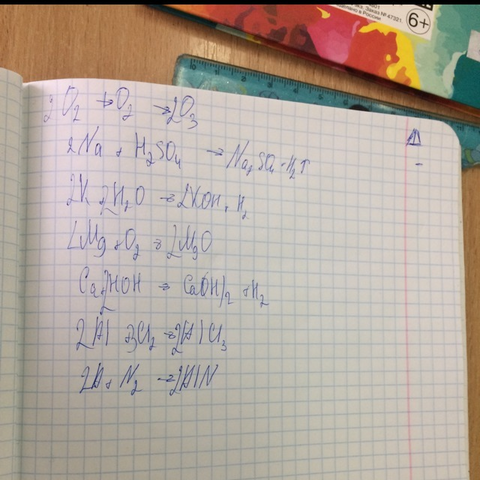 6+
2O₂ + O₂ → 2O₃
2Na + H₂SO₄ → Na₂SO₄ + H₂↑
2K + 2H₂O → 2KOH + H₂
2Mg + O₂ → 2MgO
Ca + 2HOH → Ca(OH)₂ + H₂
2Al + 3Cl₂ → 2AlCl₃
2Al + N₂ → 2AlN